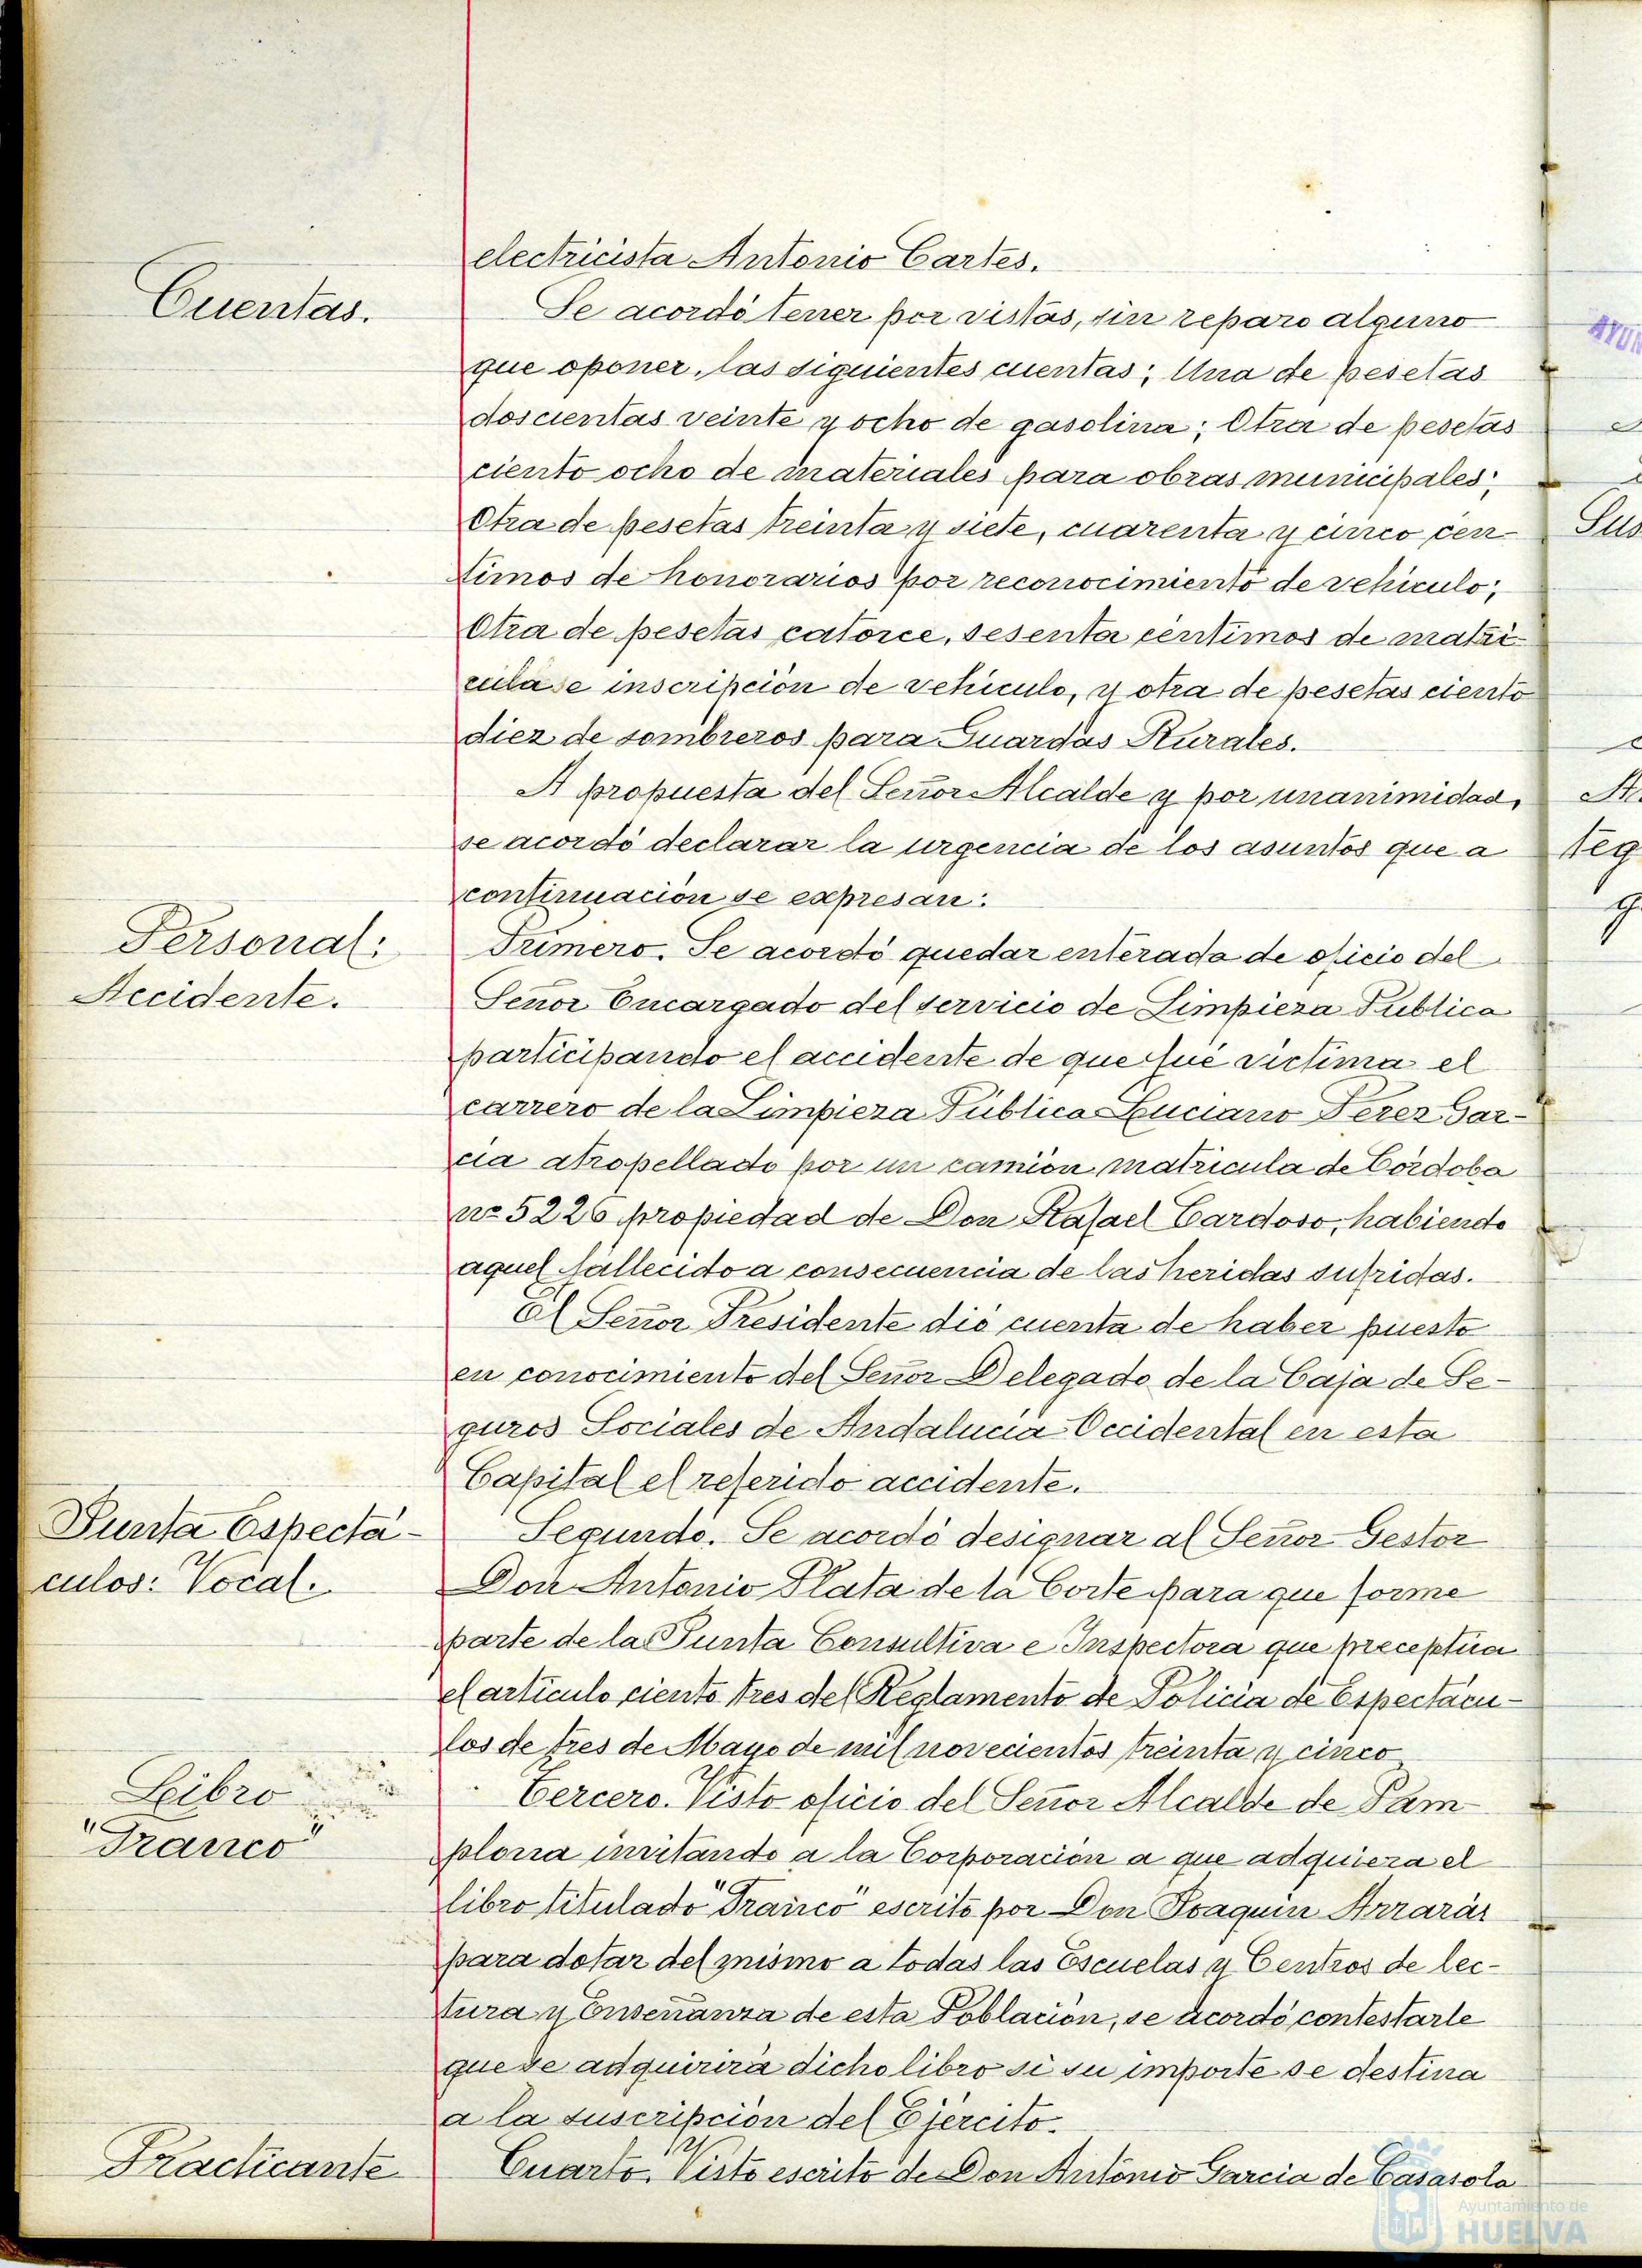 electricista Antonio Cartes.
Cuentas.
Se acordó tener por vistas, sin reparo alguno
que oponer, las siguientes cuentas; Una de pesetas
doscientas veinte y ocho de gasolina; Otra de pesetas
ciento ocho de materiales para obras municipales;
Otra de pesetas treinta y siete, cuarenta y cinco cen-
timos de honorarios por reconocimiento de vehiculo;
Otra de pesetas catorce, sesenta centimos de matri-
cula se inscripción de vehiculo, y otra de pesetas ciento
diez de sombreros para Guardas Rurales.
A propuesta del Señor Alcalde y por unanimidad,
se acordó declarar la urgencia de los asuntos que a
continuación se expresan:
Personal:
Accidente.
Primero. Se acordó quedar enterada de oficio del
Señor Encargado del servicio de Limpieza Publica
participando el accidente de que fué victima el
carrero de la Limpieza Pública Luciano Perez Gar-
cia atropellado por un camión matricula de Córdoba
nº 5226 propiedad de Don Rafael Cardoso, habiendo
aquel fallecido a consecuencia de las heridas sufridas.
El Señor Presidente dió cuenta de haber puesto
en conocimiento del Señor Delegado de la Caja de Se-
guros Sociales de Andalucia Occidental en esta
Capital el referido accidente.
Junta Especta-
culos: Vocal.
Segundo. Se acordó designar al Señor Gestor
Don Antonio Plata de la Corte para que forme
parte de la Junta Consultiva e Inspectora que preceptúa
el articulo ciento tres del Reglamento de Policia de Espectacu-
los de tres de Mayo de mil novecientos treinta y cinco
Libro
"Franco"
Tercero. Visto oficio del Señor Alcalde de Pam-
plona invitando a la Corporación a que adquiera el
libro titulado "Franco" escrito por Don Joaquin Arrarás
para dotar del mismo a todas las Escuelas y Centros de lec-
tura y Enseñanza de esta Población, se acordó contestarle
que se adquirirá dicho libro si su importe se destina
a la suscripción del Ejército.
Practicante
Cuarto. Visto escrito de Don Antonio Garcia de Casasola
Ayuntamiento de
HUELVA